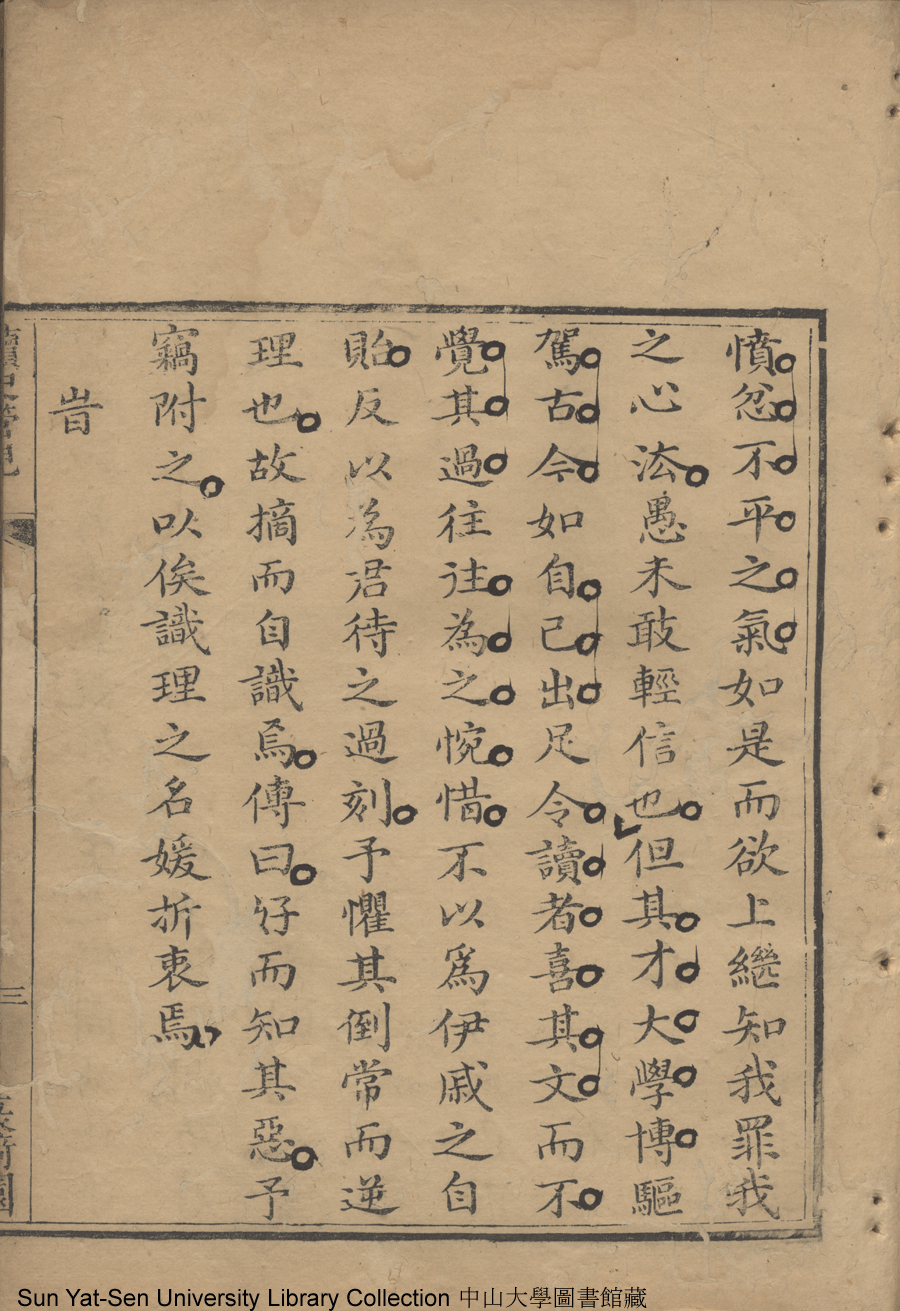 憤忿不平之氣如是而欲上繼知我罪我
之心法愚未敢輕信也但其才大學博驅
駕古今如自己出足令讀者喜其文而不
覺其過往往為之惋惜不以爲伊戚之自
貽反以為君待之過刻予懼其倒常而逆
理也故摘而自識焉傳曰好而知其惡予
竊附之以俟識理之名媛折衷焉
三
Sun Yat-Sen University Library Collection 中山大學圖書館藏